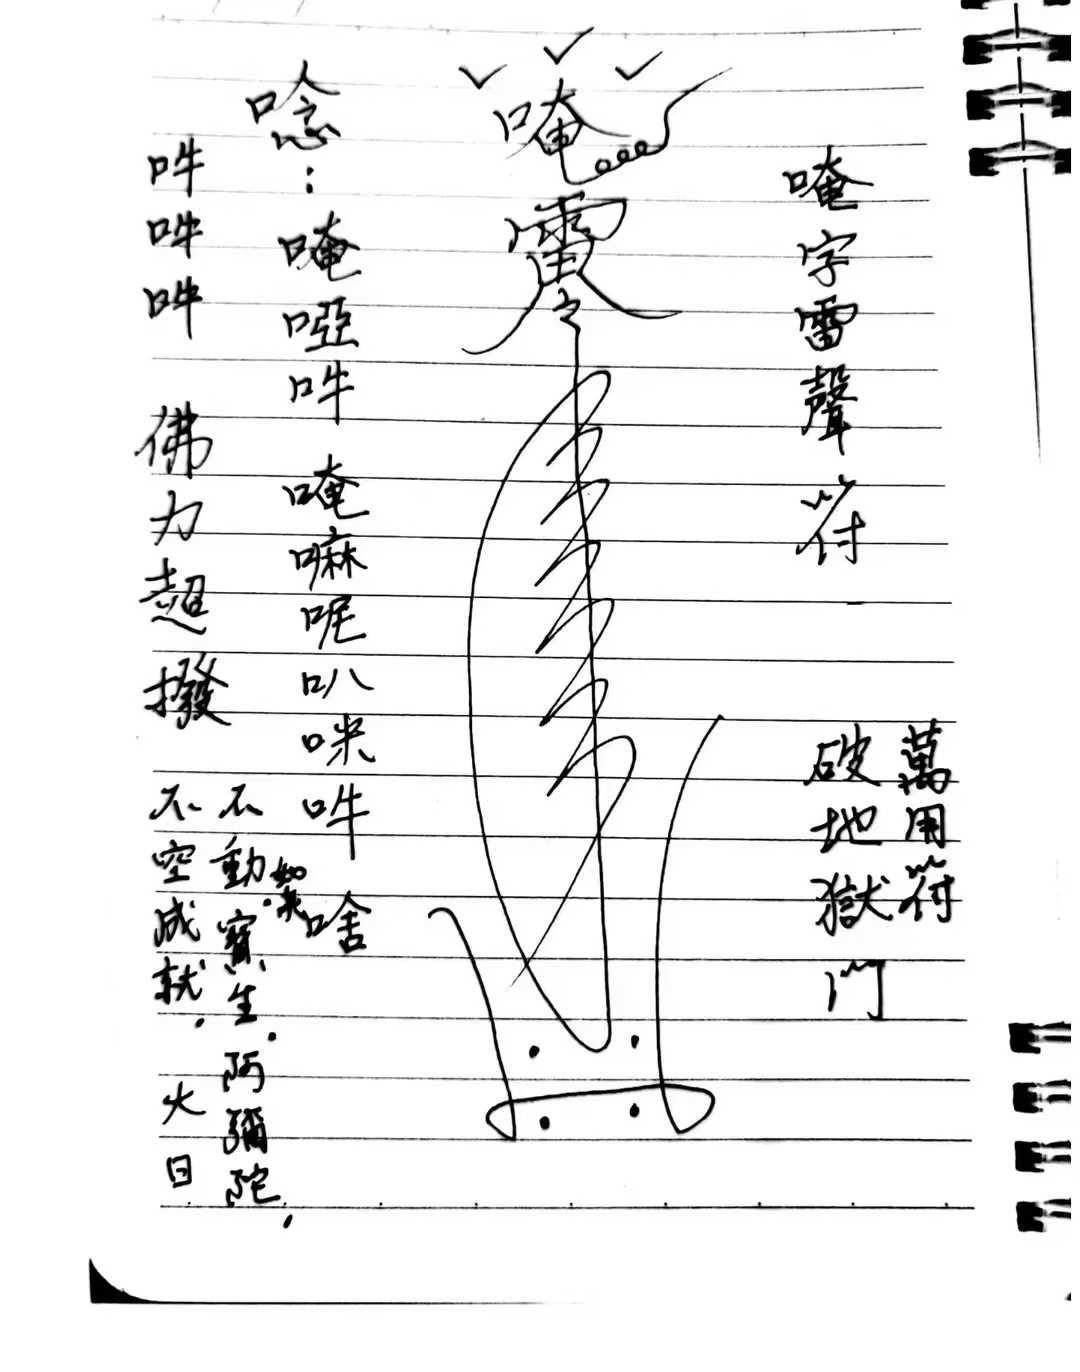 唵字雷聲符
萬用符
破地獄門
唵
雷
唸：唵啞吽 唵嘛呢叭咪吽啥
吽吽吽 佛力超撥
不動如來.寶生.阿彌陀.
不空成就.大日